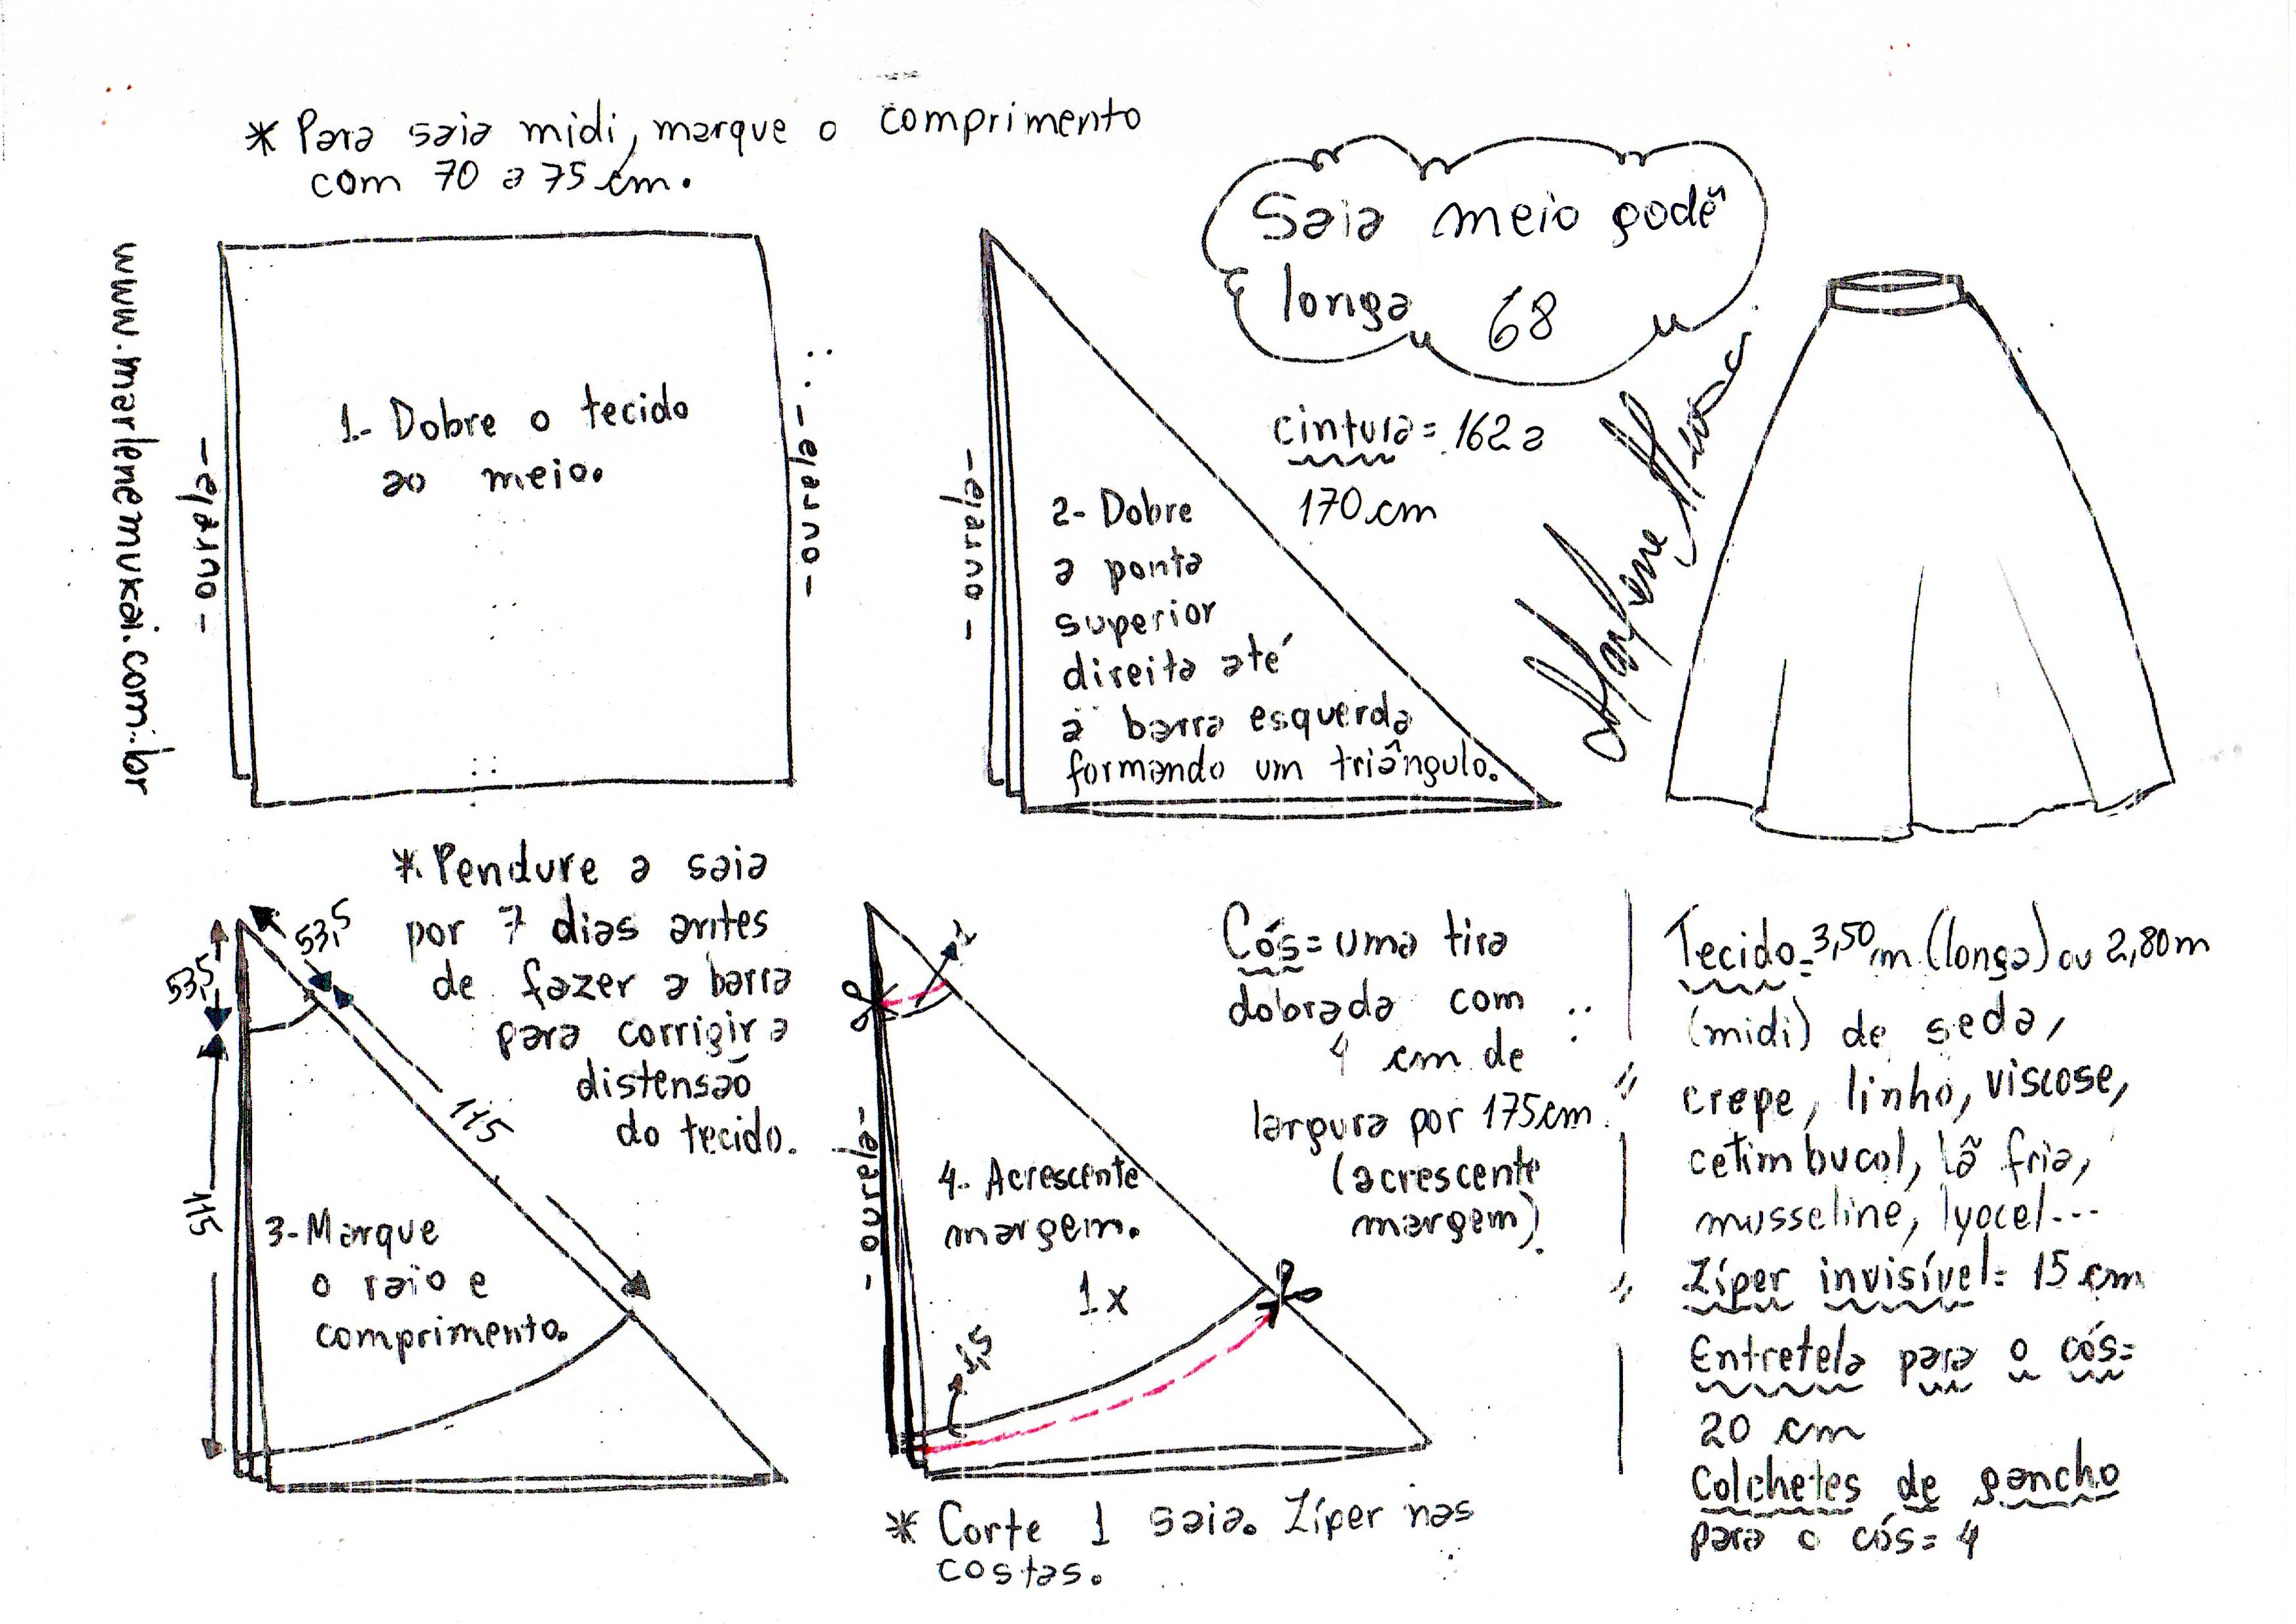 * Para saia midi, marque o comprimento
com 70 a 75 cm.
Saia meio godê
longa 68
www.marlenemukai.com.br
-ourela-
1- Dobre o tecido
ao meio.
-ourela-
-ourela-
cintura = 162 a
170 cm
2- Dobre
a ponta
superior
direita até
a barra esquerda
formando um triângulo.
Marlene Mukai
* Pendure a saia
por 7 dias antes
de fazer a barra
para corrigir a
distensão
do tecido.
53,5
53,5
115
115
3- Marque
o raio e
comprimento.
1
-ourela-
4- Acrescente
margem.
1x
1,5
* Corte 1 saia. Zíper nas
costas.
Cós = uma tira
dobrada com
4 cm de
largura por 175 cm
(acrescente
margem).
Tecido = 3,50 m (longa) ou 2,80 m
(midi) de seda,
crepe, linho, viscose,
cetim bucol, lã fria,
musseline, lyocel...
Zíper invisível = 15 cm
Entretela para o cós =
20 cm
Colchetes de gancho
para o cós = 4